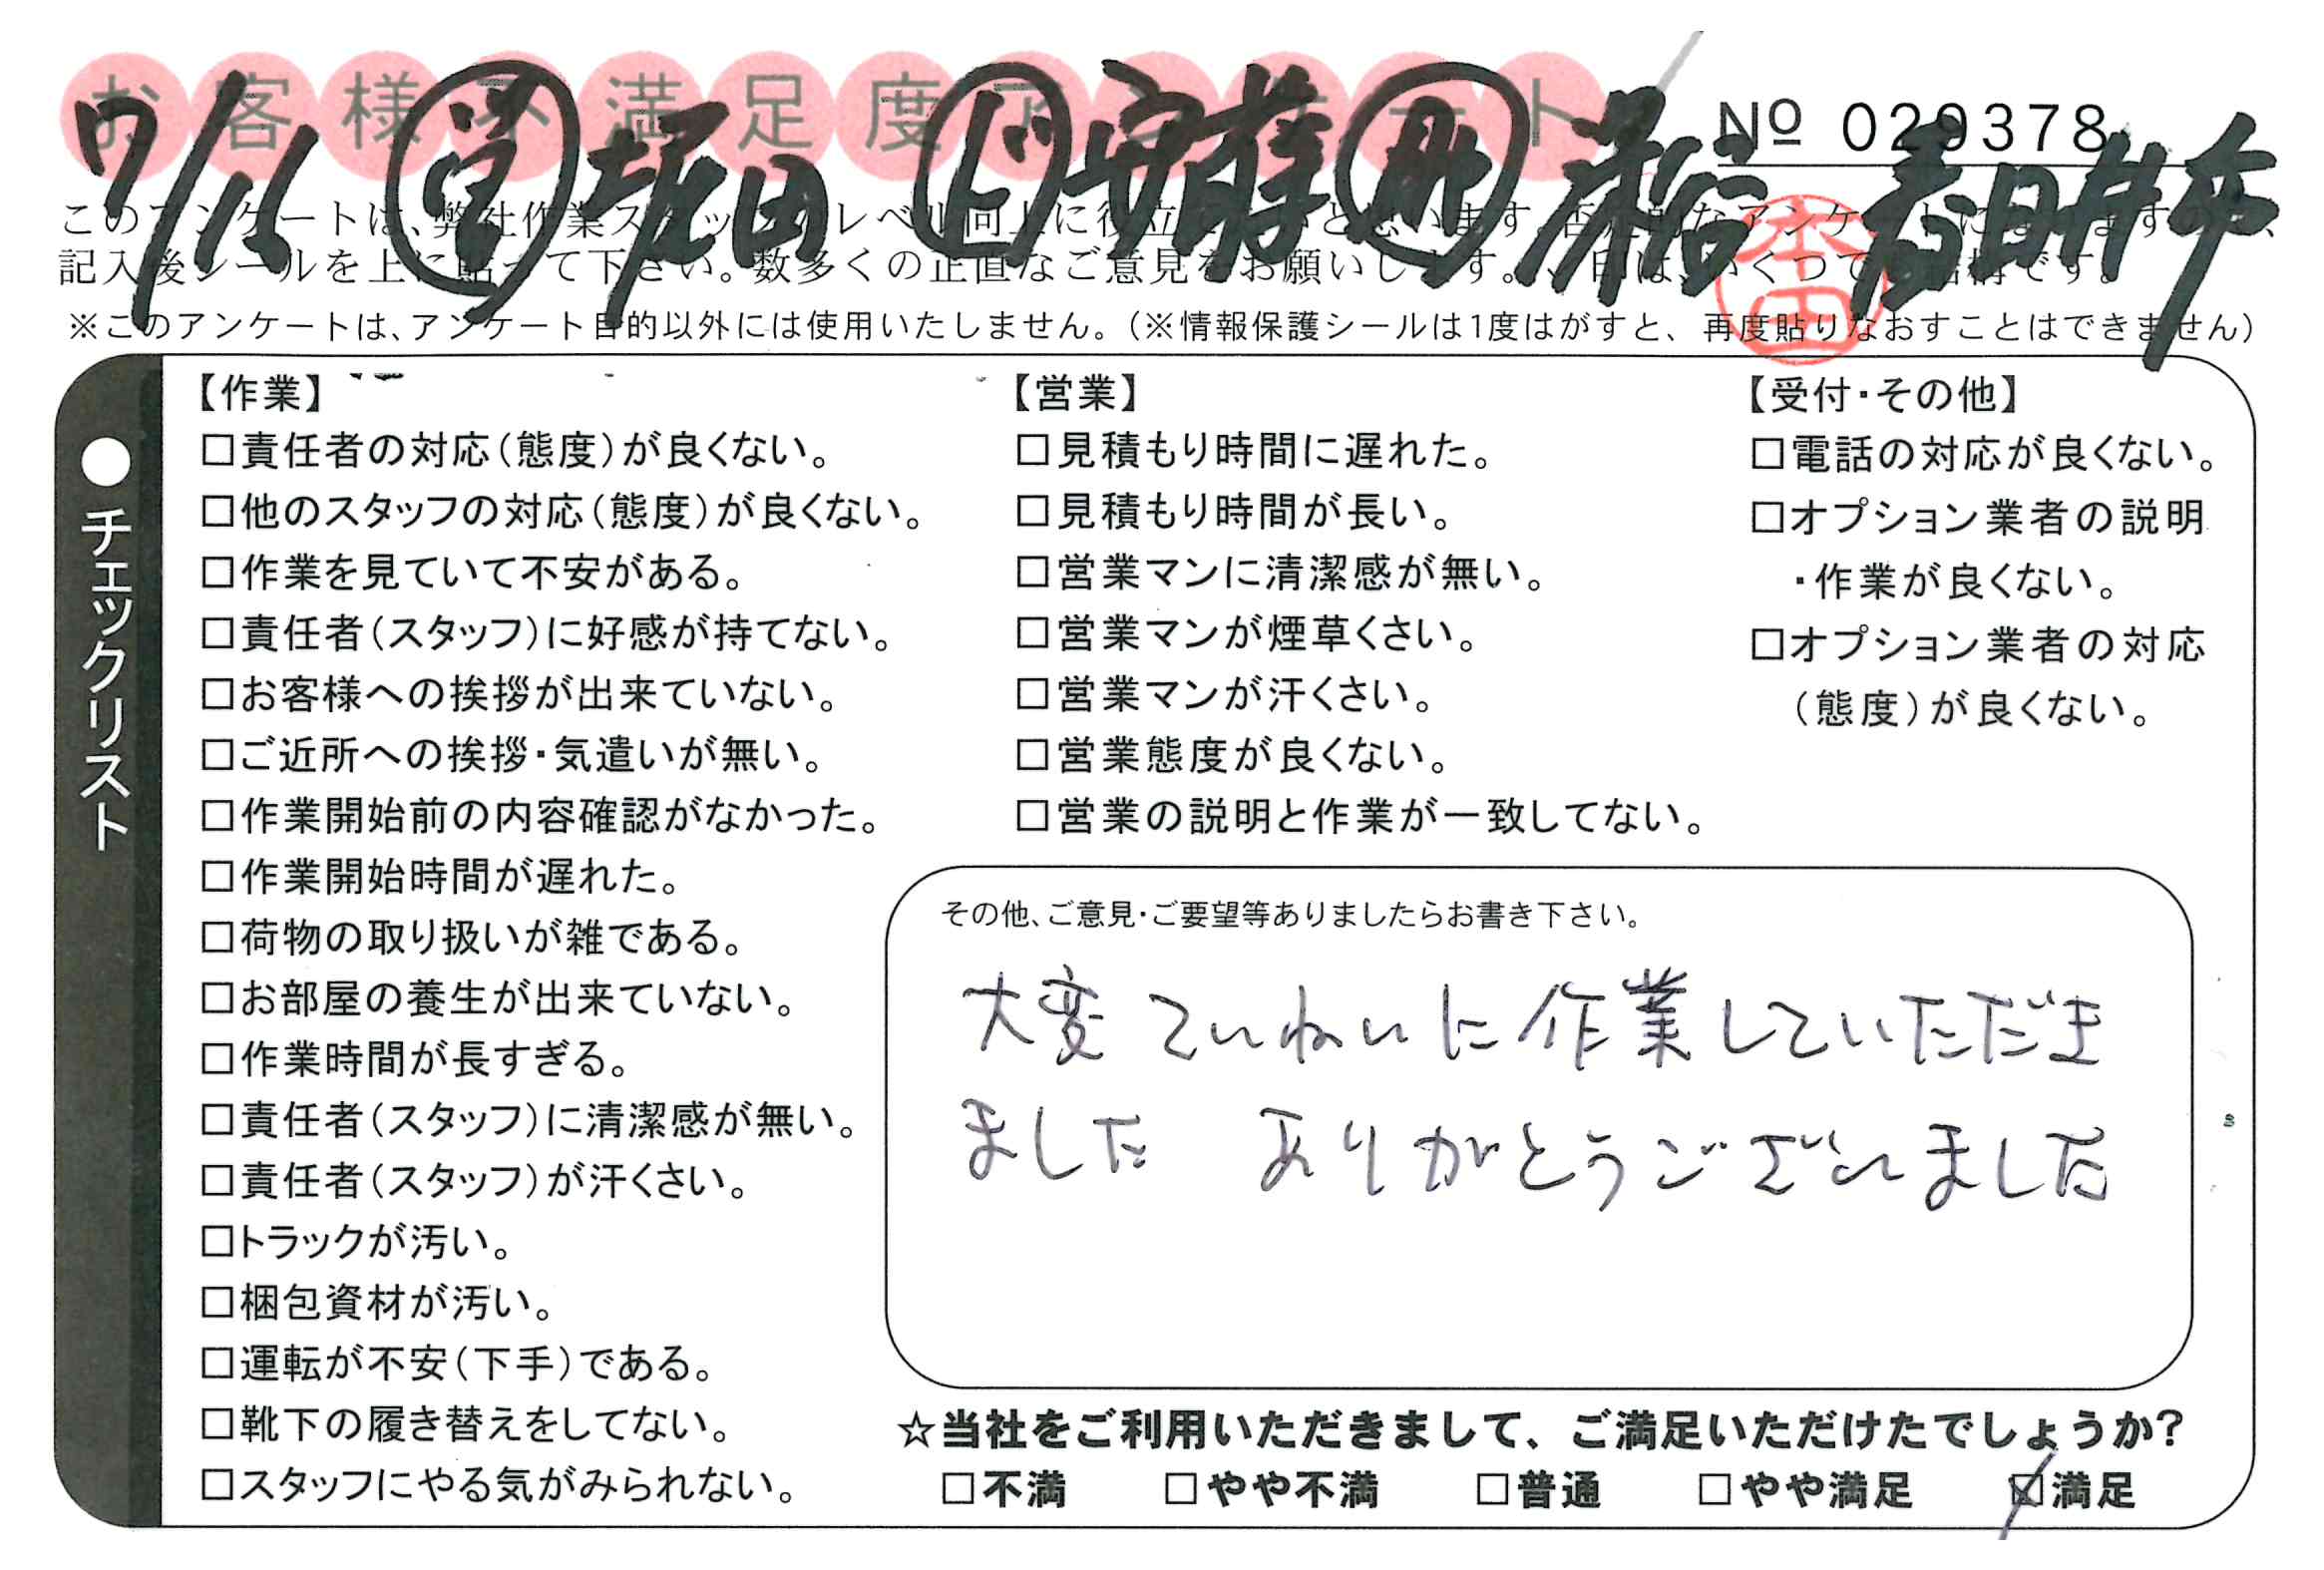 お客様不満足度アンケート
No 029378
7/16 営 堀田 安藤 春日井市
このアンケートは、弊社作業スタッフのレベル向上に役立
記入後シールを上に貼って下さい。数多くの正直なご意見をお願いします。
本田
※このアンケートは、アンケート目的以外には使用いたしません。(※情報保護シールは1度はがすと、再度貼りなおすことはできません)
●チェックリスト
【作業】
□責任者の対応(態度)が良くない。
□他のスタッフの対応(態度)が良くない。
□作業を見ていて不安がある。
□責任者(スタッフ)に好感が持てない。
□お客様への挨拶が出来ていない。
□ご近所への挨拶・気遣いが無い。
□作業開始前の内容確認がなかった。
□作業開始時間が遅れた。
□荷物の取り扱いが雑である。
□お部屋の養生が出来ていない。
□作業時間が長すぎる。
□責任者(スタッフ)に清潔感が無い。
□責任者(スタッフ)が汗くさい。
□トラックが汚い。
□梱包資材が汚い。
□運転が不安(下手)である。
□靴下の履き替えをしてない。
□スタッフにやる気がみられない。
【営業】
□見積もり時間に遅れた。
□見積もり時間が長い。
□営業マンに清潔感が無い。
□営業マンが煙草くさい。
□営業マンが汗くさい。
□営業態度が良くない。
□営業の説明と作業が一致してない。
【受付・その他】
□電話の対応が良くない。
□オプション業者の説明
・作業が良くない。
□オプション業者の対応
(態度)が良くない。
その他、ご意見・ご要望等ありましたらお書き下さい。
大変ていねいに作業していただき
ました ありがとうございました
☆当社をご利用いただきまして、ご満足いただけたでしょうか?
□不満 □やや不満 □普通 □やや満足 ☑満足